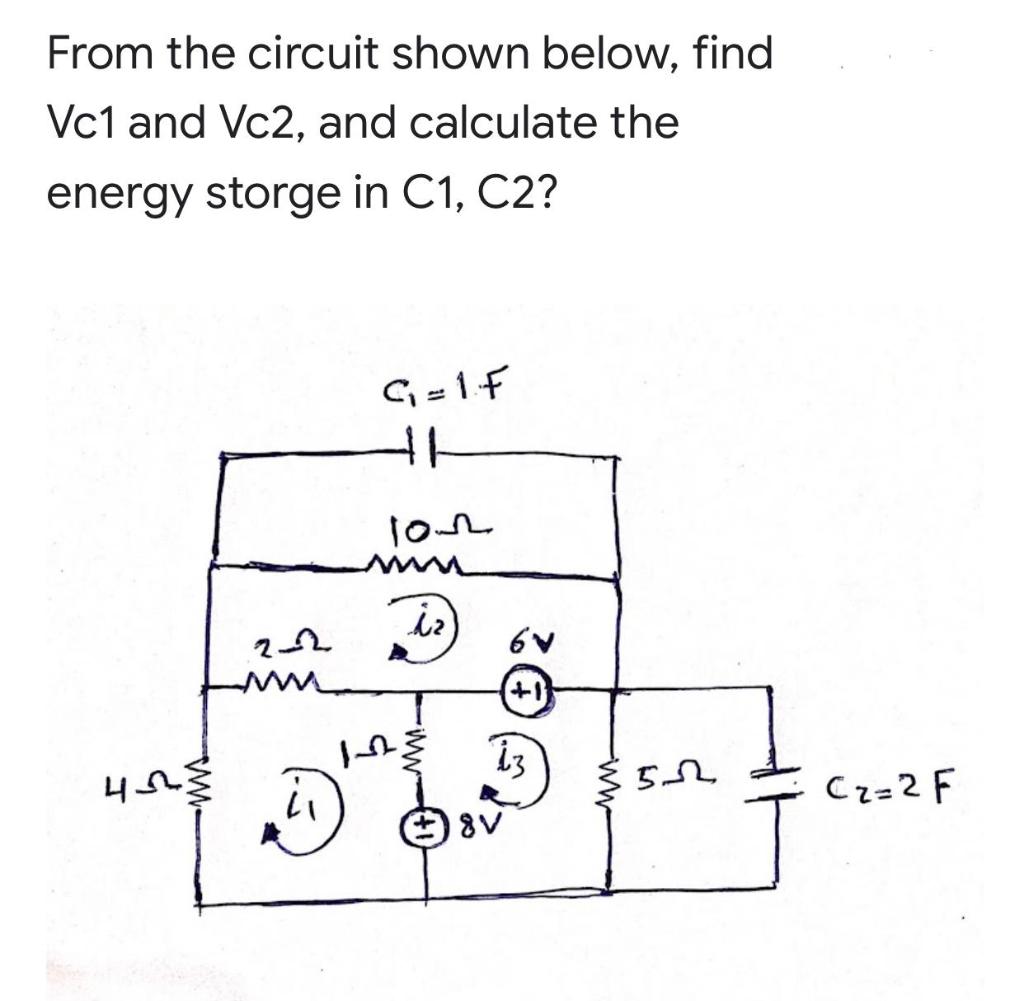 From the circuit shown below, find
Vc1 and Vc2, and calculate the
energy storge in C1, C2?
C₁ = 1 F
10Ω
i₂
2Ω
6V
+ |
1Ω
i₃
4Ω
i₁
5Ω
C₂ = 2 F
± 8V